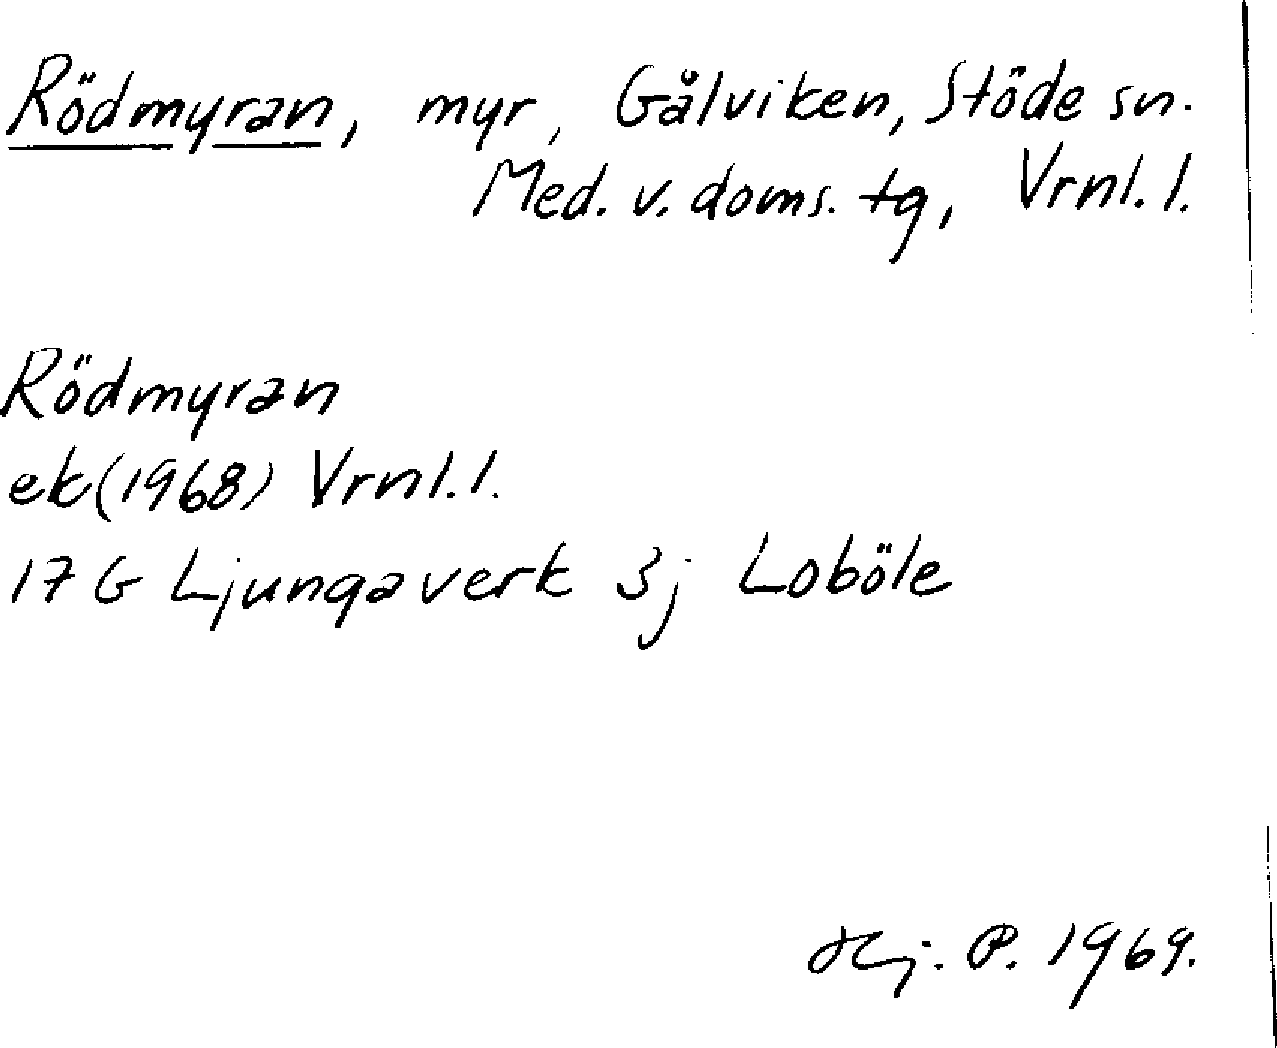 Rödmyran, myr, Gålviken, Stöde sn.
Med. v. doms. tg, Vrnl. l.
Rödmyran
ek (1968) Vrnl. l.
17 G Ljungaverk 3j Loböle
Hj. P. 1969.